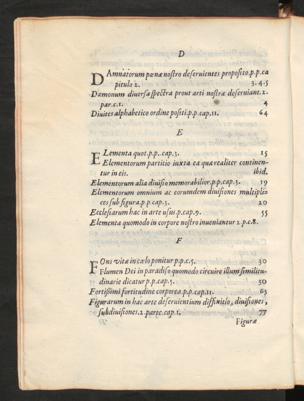 D
DAmnatorum pœnæ nostro deseruientes proposito.p.p.ca
pitulo 2. 3.4.5
Dæmonum diuersa spectra prout arti nostræ deseruiant.2.
par.c.1. 4
Diuites alphabetico ordine positi.p.p.cap.11. 64
E
ELementa quot.p.p.cap.5. 15
Elementorum partitio iuxta ea quæ realiter continen-
tur in eis. ibid.
Elementorum alia diuisio memorabilior.p.p.cap.5. 19
Elementorum omnium ac eorumdem diuisiones multipli-
ces sub figura.p.p.cap.5. 20
Ecclesiarum hac in arte usus.p.cap.9. 55
Elementa quomodo in corpore nostro inueniantur 2.p.c.8.
F
FOns vitæ in cælo ponitur p.p.c.5. 30
Flumen Dei in paradiso quomodo circuire illum similitu-
dinarie dicatur p.p.cap.5. 30
Fortissimi fortitudine corporea.p.p.cap.11. 63
Figurarum in hac arte deseruientium diffinitio, diuisiones,
subdiuisiones.2.parte.cap.1. 77
Figuræ